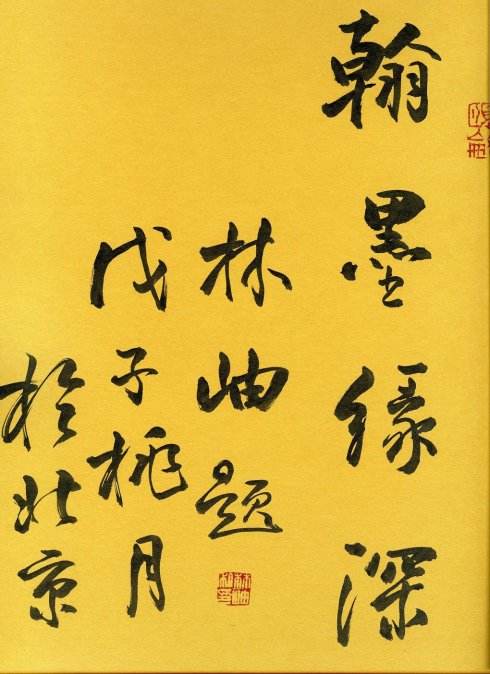 翰墨缘深
林岫题
戊子桃月
於北京